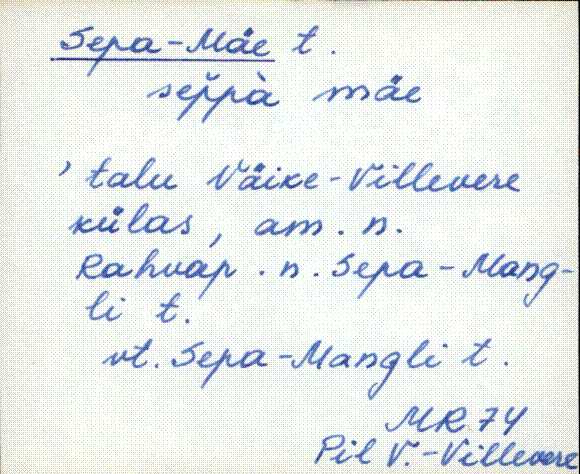 Sepa-Mäe t.
sep̆pà mäe
, talu Väike-Villevere
külas, am. n.
Rahvap. n. Sepa-Mang-
li t.
vt. Sepa-Mangli t.
MR 74
Pil V.-Villevere